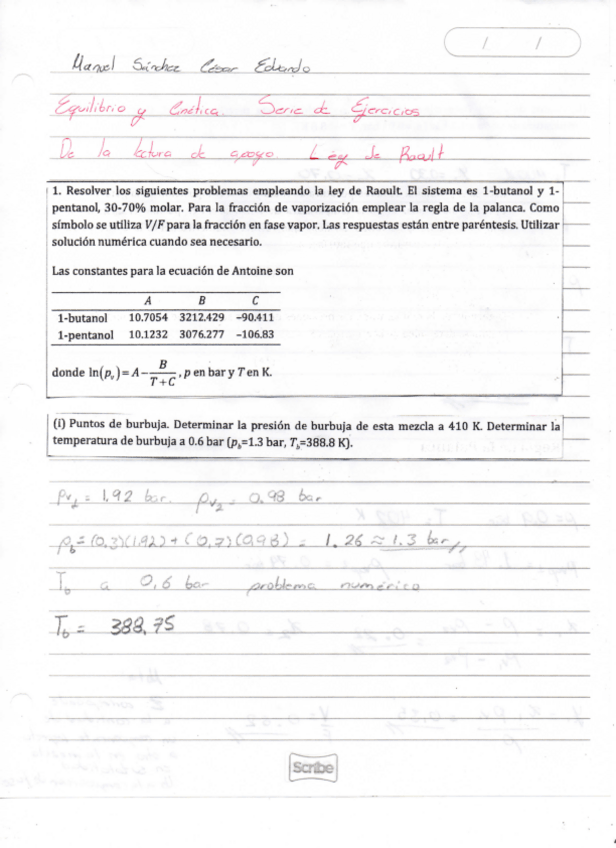 / /
Manuel Sánchez César Eduardo
Equilibrio y Cinética. Serie de Ejercicios
De la lectura de apoyo Ley de Raoult
1. Resolver los siguientes problemas empleando la ley de Raoult. El sistema es 1-butanol y 1-
pentanol, 30-70% molar. Para la fracción de vaporización emplear la regla de la palanca. Como
símbolo se utiliza V/F para la fracción en fase vapor. Las respuestas están entre paréntesis. Utilizar
solución numérica cuando sea necesario.
Las constantes para la ecuación de Antoine son
A B C
1-butanol 10.7054 3212.429 −90.411
1-pentanol 10.1232 3076.277 −106.83
donde ln(pᵥ)=A−B/(T+C), p en bar y T en K.
(i) Puntos de burbuja. Determinar la presión de burbuja de esta mezcla a 410 K. Determinar la
temperatura de burbuja a 0.6 bar (p_b=1.3 bar, T_b=388.8 K).
Pv₁ = 1,92 bar. Pv₂ = 0.98 bar
P_b=(0,3)(1.92)+(0,7)(0,98) = 1.26 ≈ 1.3 bar,,
T_b a 0,6 bar problema numérico
T_b = 388,75
Scribe